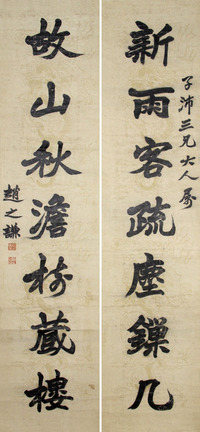 新雨客疏塵鏁几
子沛三兄大人屬
故山秋澹椅藏樓
趙之謙